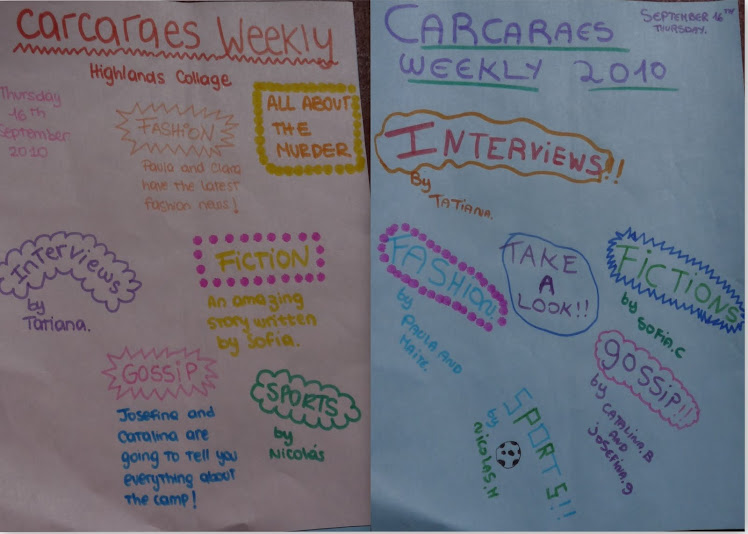 Carcaraes Weekly
Highlands Collage
Thursday
16th
September
2010
FASHION
Paula and Clara
have the latest
fashion news!
ALL ABOUT
THE
MURDER
Interviews
by
Tatiana.
FICTION
An amazing
story written
by Sofia.
GOSSIP
Josefina and
Catalina are
going to tell you
everything about
the camp!
SPORTS
by
Nicolás
CARCARAES
WEEKLY 2010
SEPTEMBER 16TH
THURSDAY.
INTERVIEWS!!
By
TATIANA.
FASHION!
by
PAULA AND
MAITE.
TAKE
A
LOOK!!
FICTIONS
by
SOFIA.C
gossip!!
by
CATALINA.B
AND
josefina.g
SPORTS!!
by
NICOLAS.M